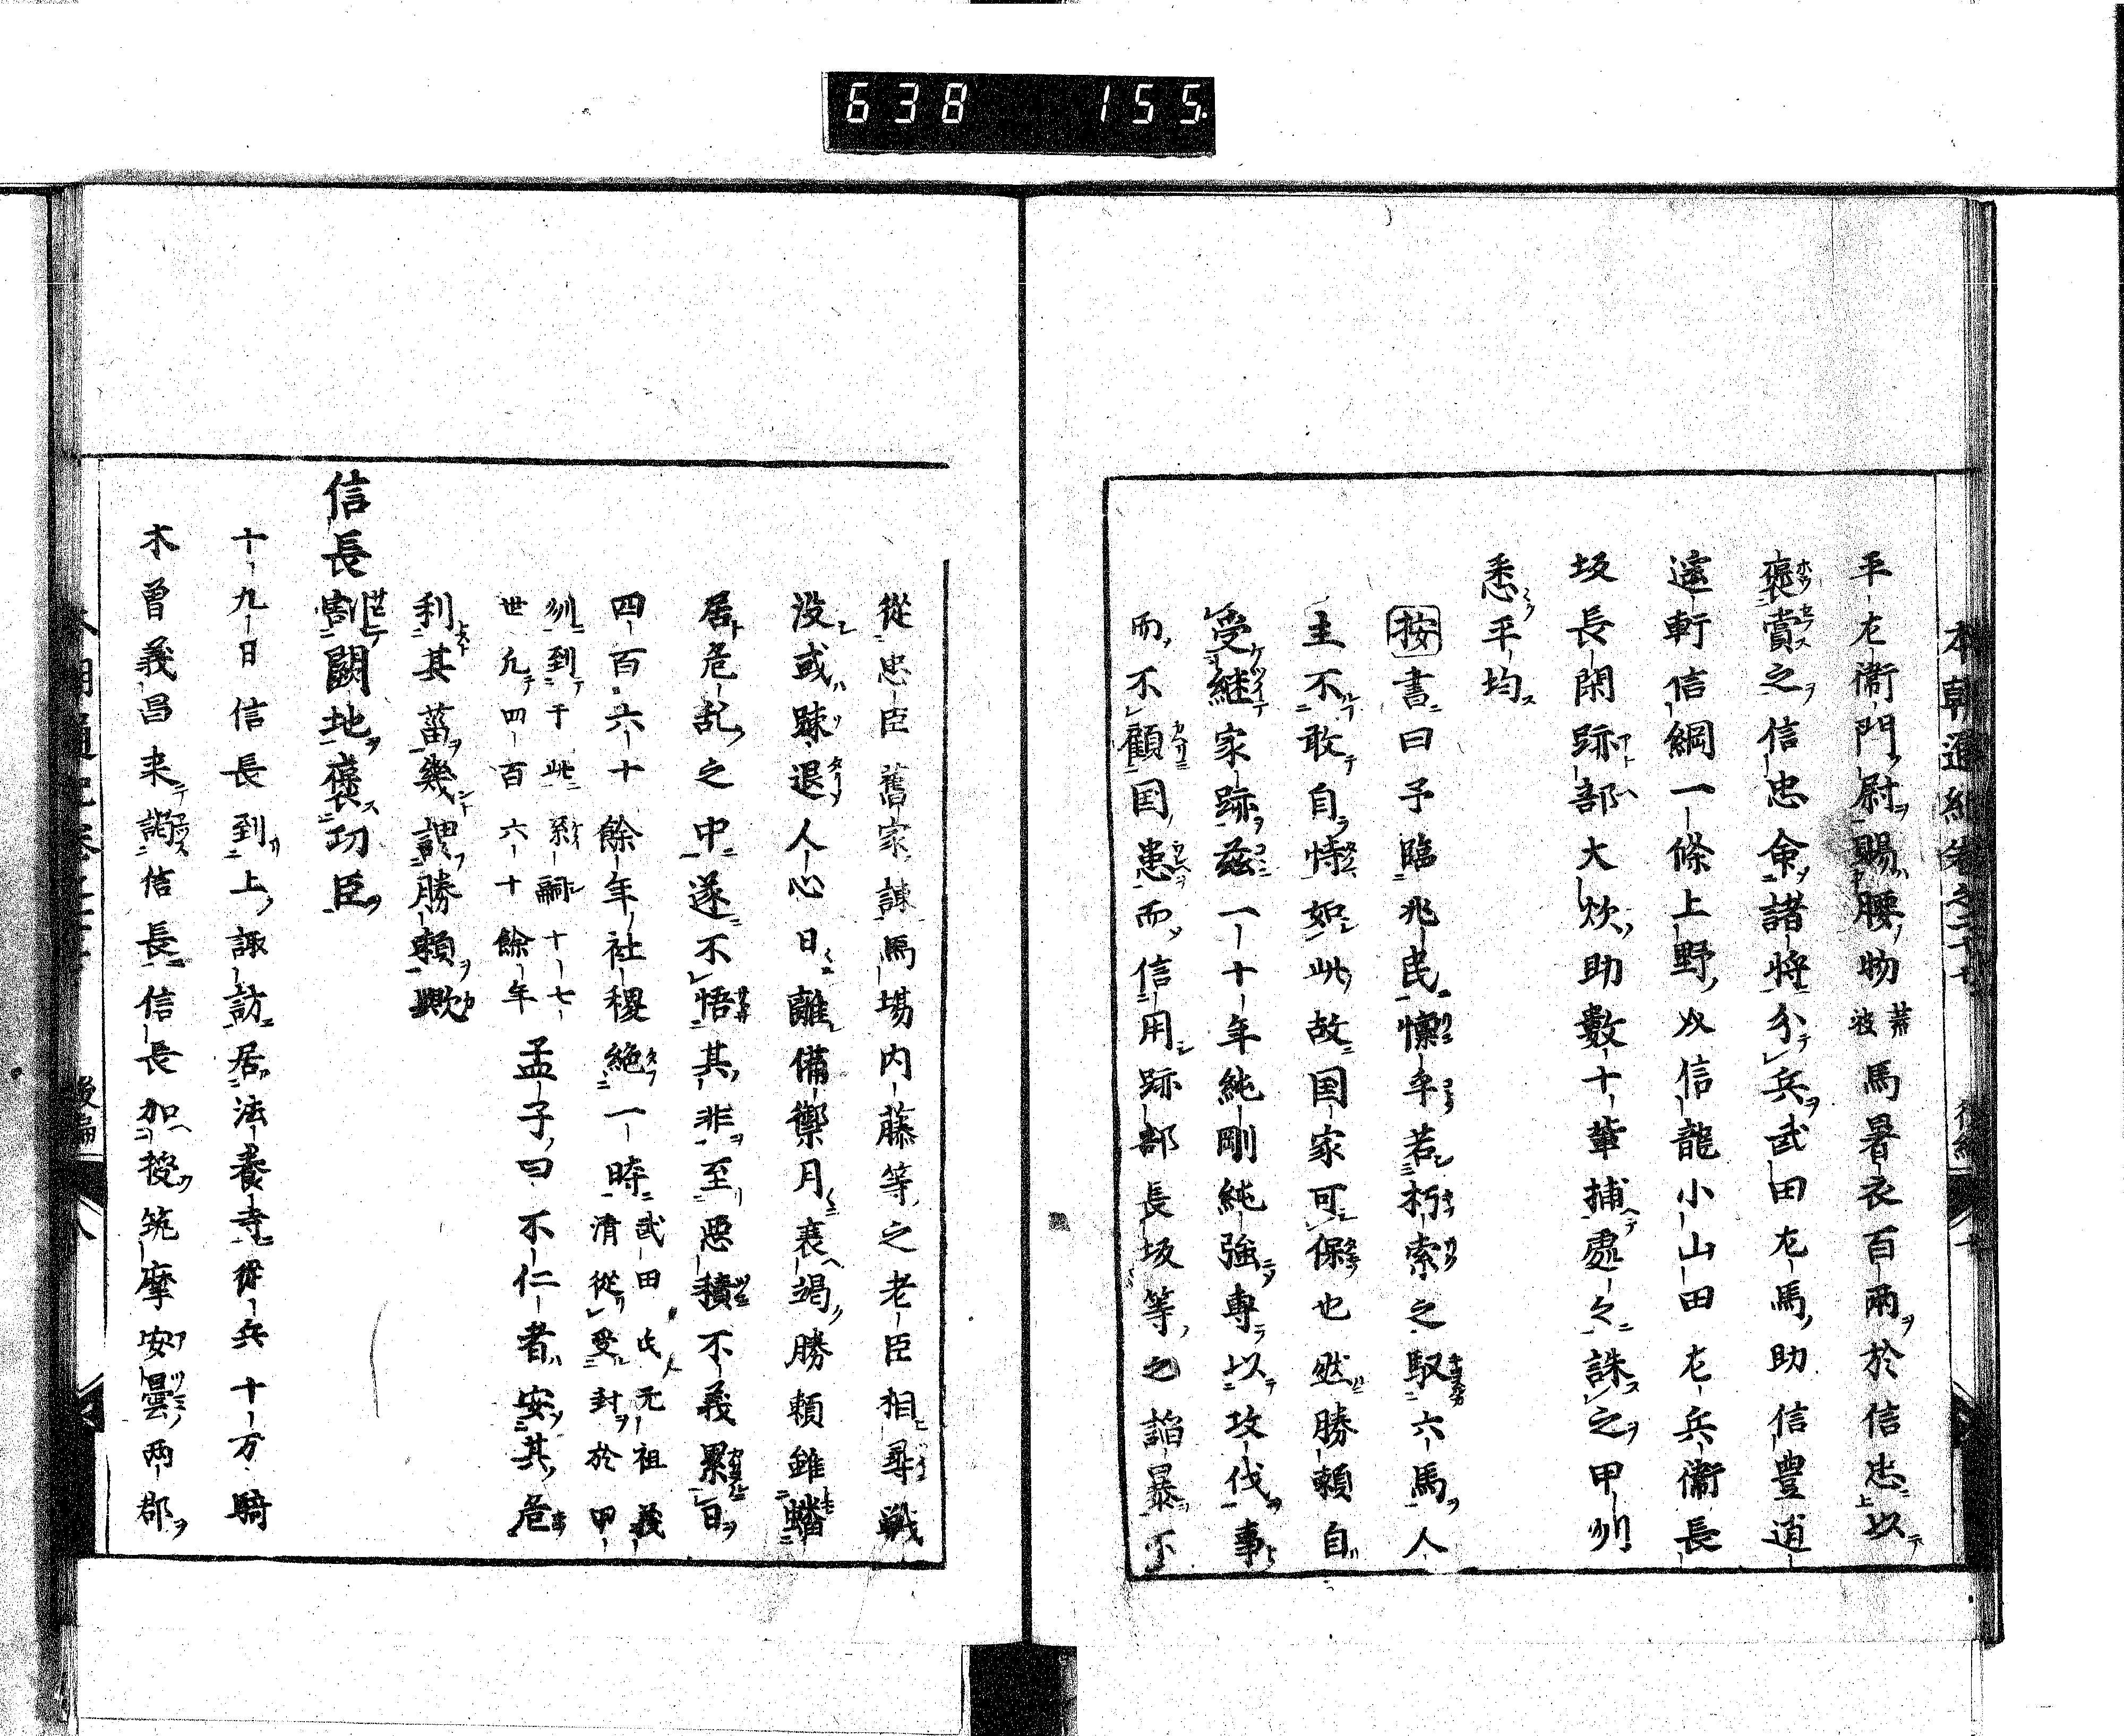 638 155
平左衞門尉賜腰物 幕被 馬暑衣百兩於信忠以
褒賞之信忠命諸將分兵武田左馬助信豊逍
遥軒信綱一條上野以信龍小山田左兵衞長
坂長閑跡部大炊助數十輩捕處々誅之甲州
悉平均
按書曰予臨兆民懍乎若朽索之馭六馬人
主不敢自恃如此故国家可保也然勝頼自
受継家跡茲一十年純剛純強専以攻伐事
而不顧国患而信用跡部長坂等之諂暴不
從忠臣舊家諫馬場内藤等之老臣相尋戦
没或疎退人心日離備禦月衰竭勝頼雖蟠
居危乱之中遂不悟其非至惡積不義累百
四百六十餘年社稷絶一時 武田氏元祖義
清從受封於甲
州到于此系嗣十七
世凡四百六十餘年 孟子曰不仁者安其危
利其菑幾謂勝頼歟
信長割闕地褒功臣
十九日信長到上諏訪居法養寺從兵十万騎
木曽義昌来謁信長信長加授筑摩安曇両郡